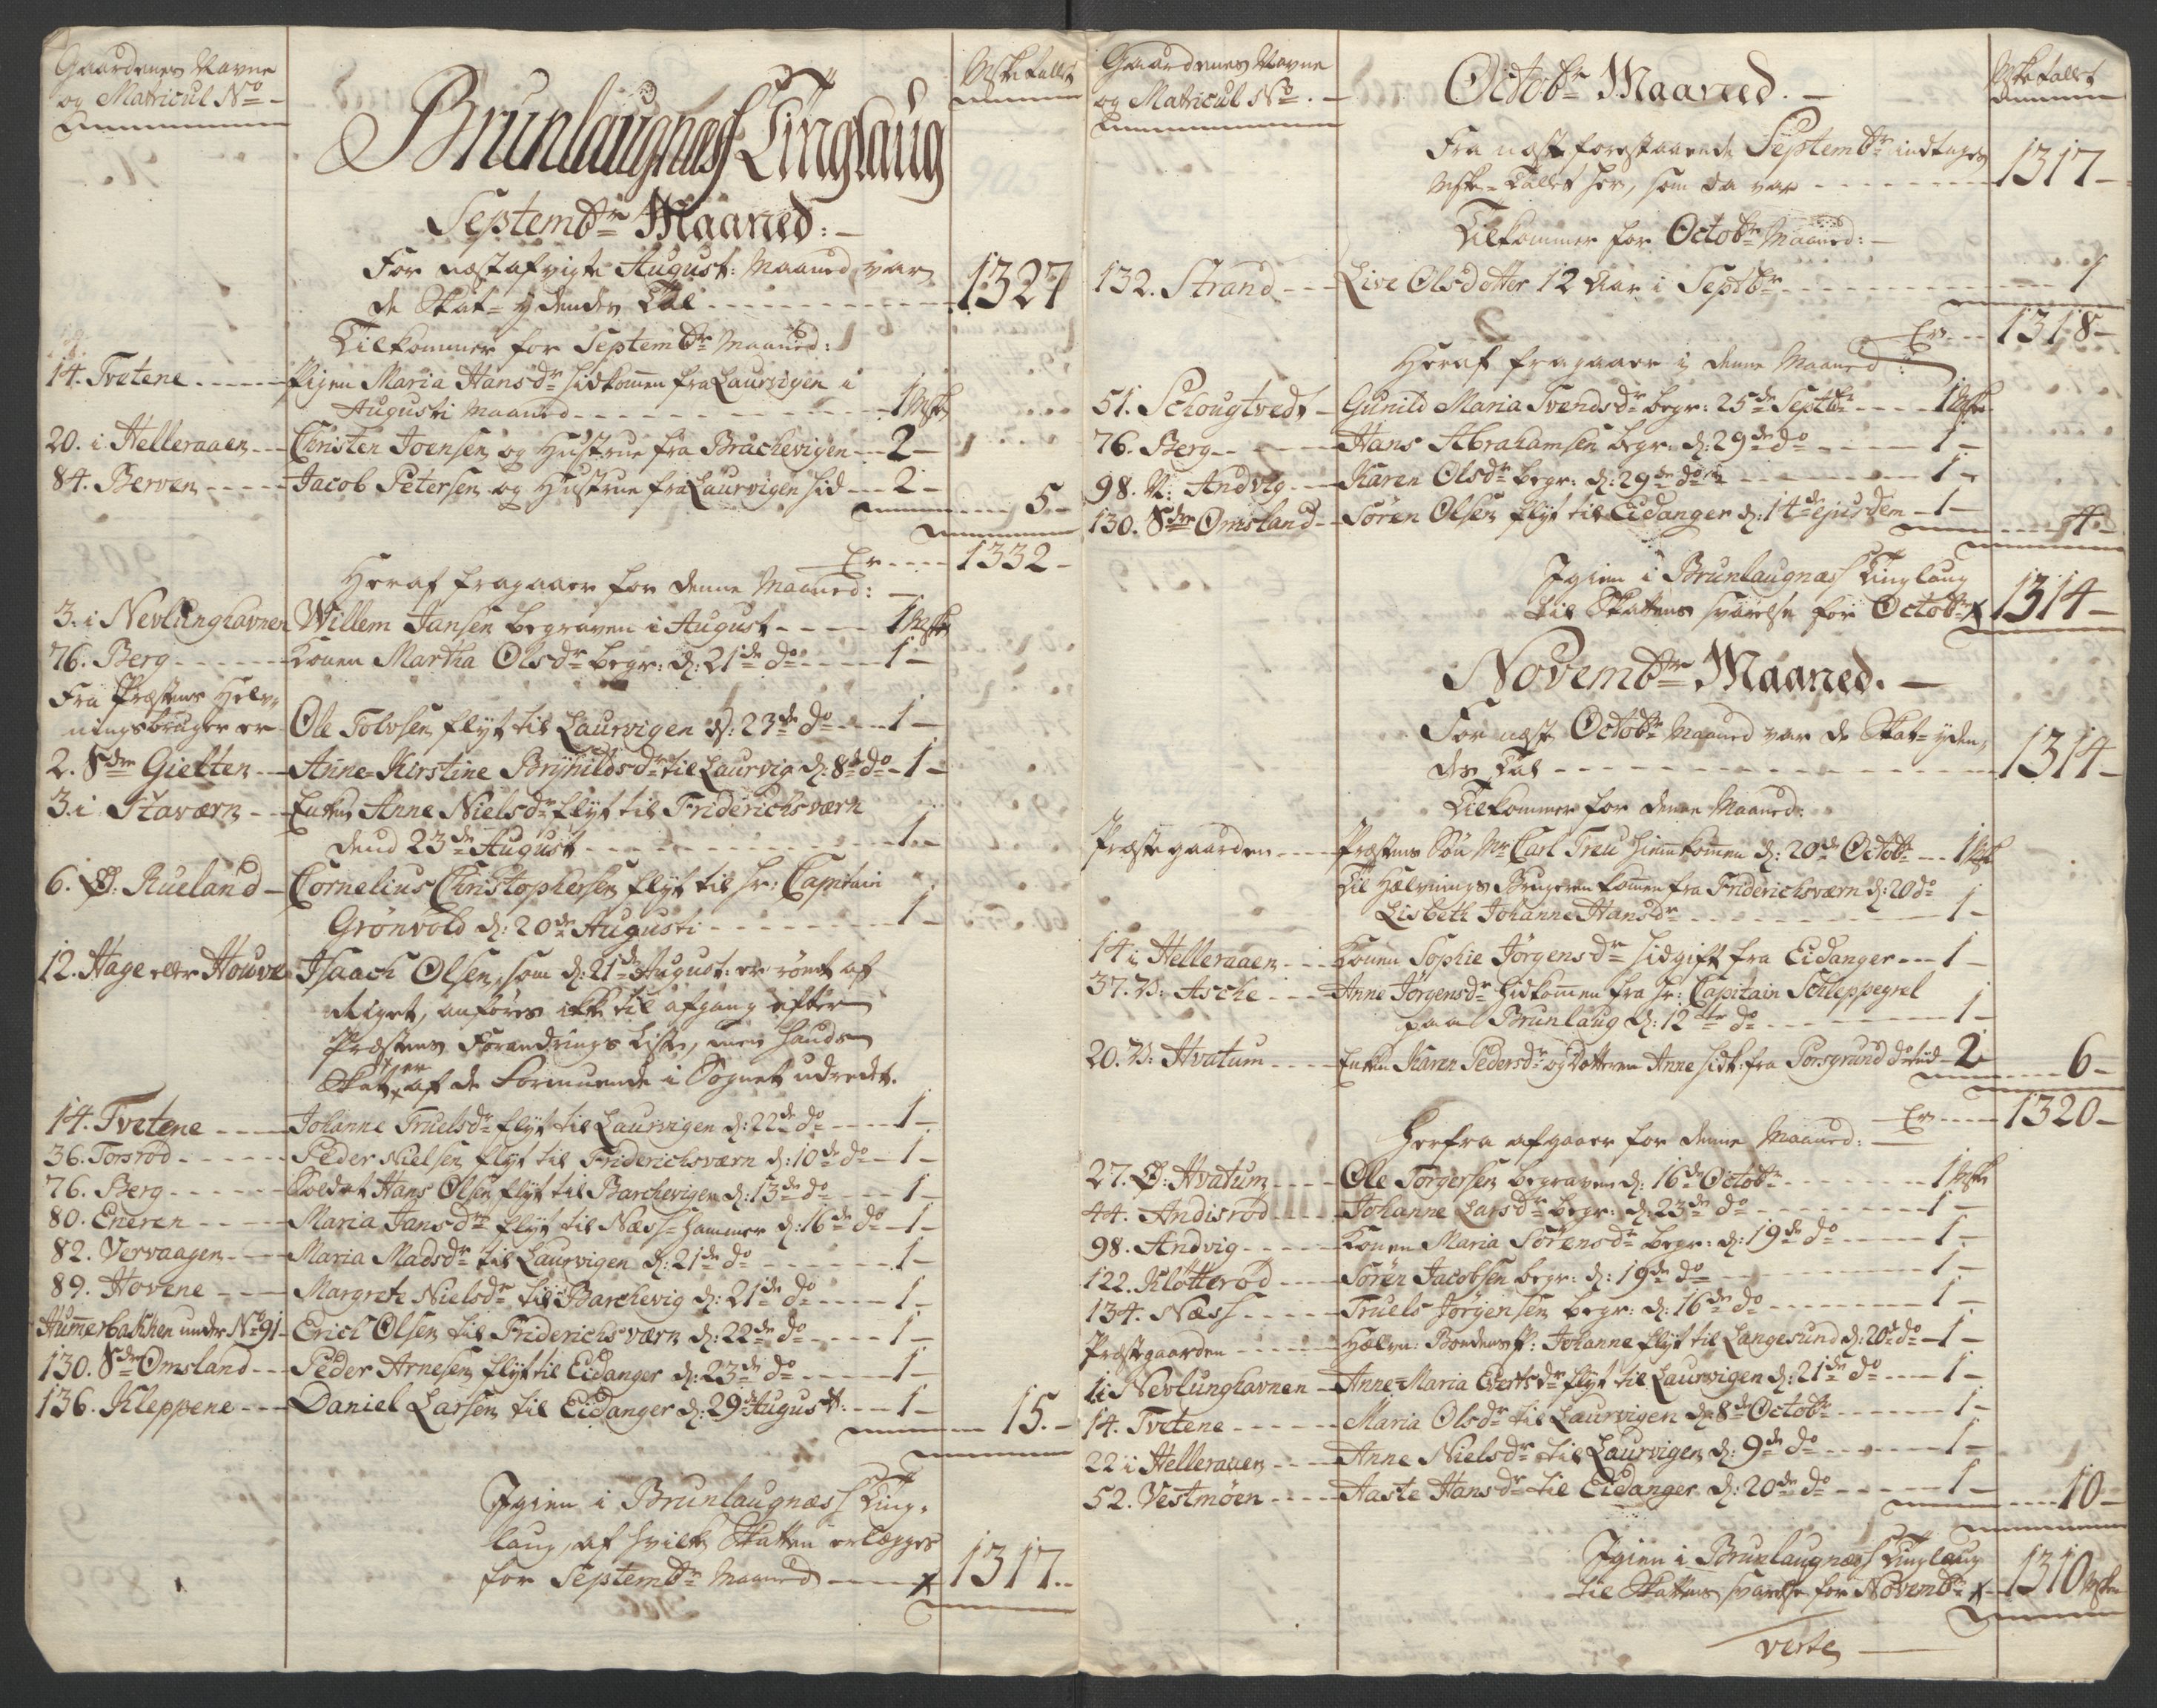 Gaardenes Navne
og Matricul No
Mske tallet
Brunlaugnæss Tinglaug
Septembr Maaned:
For næstafvigte August: Maaned var
de Skat-ydendes Tal 1327
Tilkommer for Septembr Maaned:
14. Tvetene Pigen Maria Hansdr hidkommen fra Laurvigen i
Augusti Maaned 1 Mske
20. i Helleraaen Christen Joensen og Hustrue fra Brachevigen 2
84. Berven Jacob Petersen og Hustrue fra Laurvigen hid 2
5
Er 1332
Heraf fragaaer for denne Maaned:
3. i Nevlunghavnen Willem Jansen begraven i August 1 Mske
76. Berg Konen Martha Olsdr begr: d: 21de do 1
Fra Præstens Helv-
ningsbruger er Ole Tolvsen flyt til Laurvigen d: 23de do 1
2. Sdr Gielten Anne-Kirstine Brynildsdr til Laurvig d: 8de do 1
3. i Staværn Enken Anne Nielsdr flyt til Friderichsværn
dend 23de August 1
6. Ø: Rueland Cornelius Christophersen flyt til Hr: Capitain
Grönvold d: 20de Augusti 1
12. Hage eller Houve Isaach Olsen, som d: 21de August: er römt af
Riget, anföres ikke til afgang efter
Præstens Forandrings Liste, men hands
Skat er af de Formuende i Sognet udredet.
14. Tvetene Johanne Truelsdr flyt til Laurvigen d: 22de do 1
36. Torsröd Peder Nielsen flyt til Friderichsværn d: 10de do 1
76. Berg Soldat Hans Olsen flyt til Barchevigen d: 13de do 1
80. Eneren Maria Jansdr flyt til Næss-hammer d: 16de do 1
82. Vervaagen Maria Madsdr til Laurvigen d: 21de do 1
89. Hovene Margrete Nielsdr til Barchevig d: 21de do 1
Hummerbakken under No 91 Erich Olsen til Friderichsværn d: 22de do 1
130. Sdr Omsland Peder Arnesen flyt til Eidanger d: 23de do 1
136. Kleppene Daniel Larsen til Eidanger d: 29de August: 1
15.
Igien i Brunlaugnæss Ting-
laug, af hvilke Skatten erlægges
for Septembr Maaned x 1317
Gaardenes Navne
og Matricul No
Mske tallet
Octobr Maaned.
Fra næst forestaaende Septembr indtages
Mske-Tallet her, som da var 1317
Tilkommer for Octobr Maaned:
132. Strand Live Olsdotter 12 Aar i Septbr 1
Er 1318
Heraf fragaaer i denne Maaned:
51. Schougtvedt Gunild Maria Svendsdr begr: 25de Septbr 1 Mske
76. Berg Hans Abrahamsen begr: d: 29de do 1
98. N: Andvig Karen Olsdr begr: d: 29de do 1
130. Sdr Omsland Sören Olsen flyt til Eidanger d: 14de ejusdem 1
4
Igien i Brunlaugnæss Tinglaug
til Skattens svarelse for Octobr x 1314
Novembr Maaned.
For næst Octobr Maaned var de Skat-yden-
des Tal 1314
Tilkommer for denne Maaned:
Præstegaarden Præstens Sön Mr Carl Treu hiemkommen d: 20de Octobr 1 Mske
Til Hælvnings Brugeren kommen fra Friderichsværn d: 20 do
Lisbeth Johanne Hansdr 1
14 i Helleraaen Konen Sophie Jörgensdr hidgift fra Eidanger 1
37. V: Asche Anne Jörgensdr hidkommen fra Hr: Capitain Schleppegrel
paa Brunlaug d: 12te do 1
20. V: Hvatum Enken Karen Pedersdr og Dotteren Anne hidk: fra Porsgrund do tiid 2
6
Er 1320
Herfra afgaaer for denne Maaned:
27. Ø: Hvatum Ole Torgersen begraven d: 16de Octobr 1 Mske
44. Andisröd Johanne Larsdr begr: d: 23de do 1
98. Andvig Konen Maria Sörensdr begr: d: 19de do 1
122. Klötteröd Sören Jacobsen begr: d: 19de do 1
134. Næss Truels Jörgensen begr: d: 16de do 1
Præstgaarden Hælvn: Bondens P: Johanne flyt til Langesund d: 20de do 1
1 i Nevlunghavnen Anne-Maria Evertsdr flyt til Laurvigen d: 21de do 1
14. Tvetene Maria Olsdr til Laurvigen d: 8de Octobr 1
22 i Helleraaen Anne Nielsdr til Laurvigen d: 9de do 1
52. Vestmöen Aaste Hansdr til Eidanger d: 20de do 1
10
Igien i Brunlaugnæss Tinglaug
til Skattens svarelse for Novembr x 1310 Mske
verte